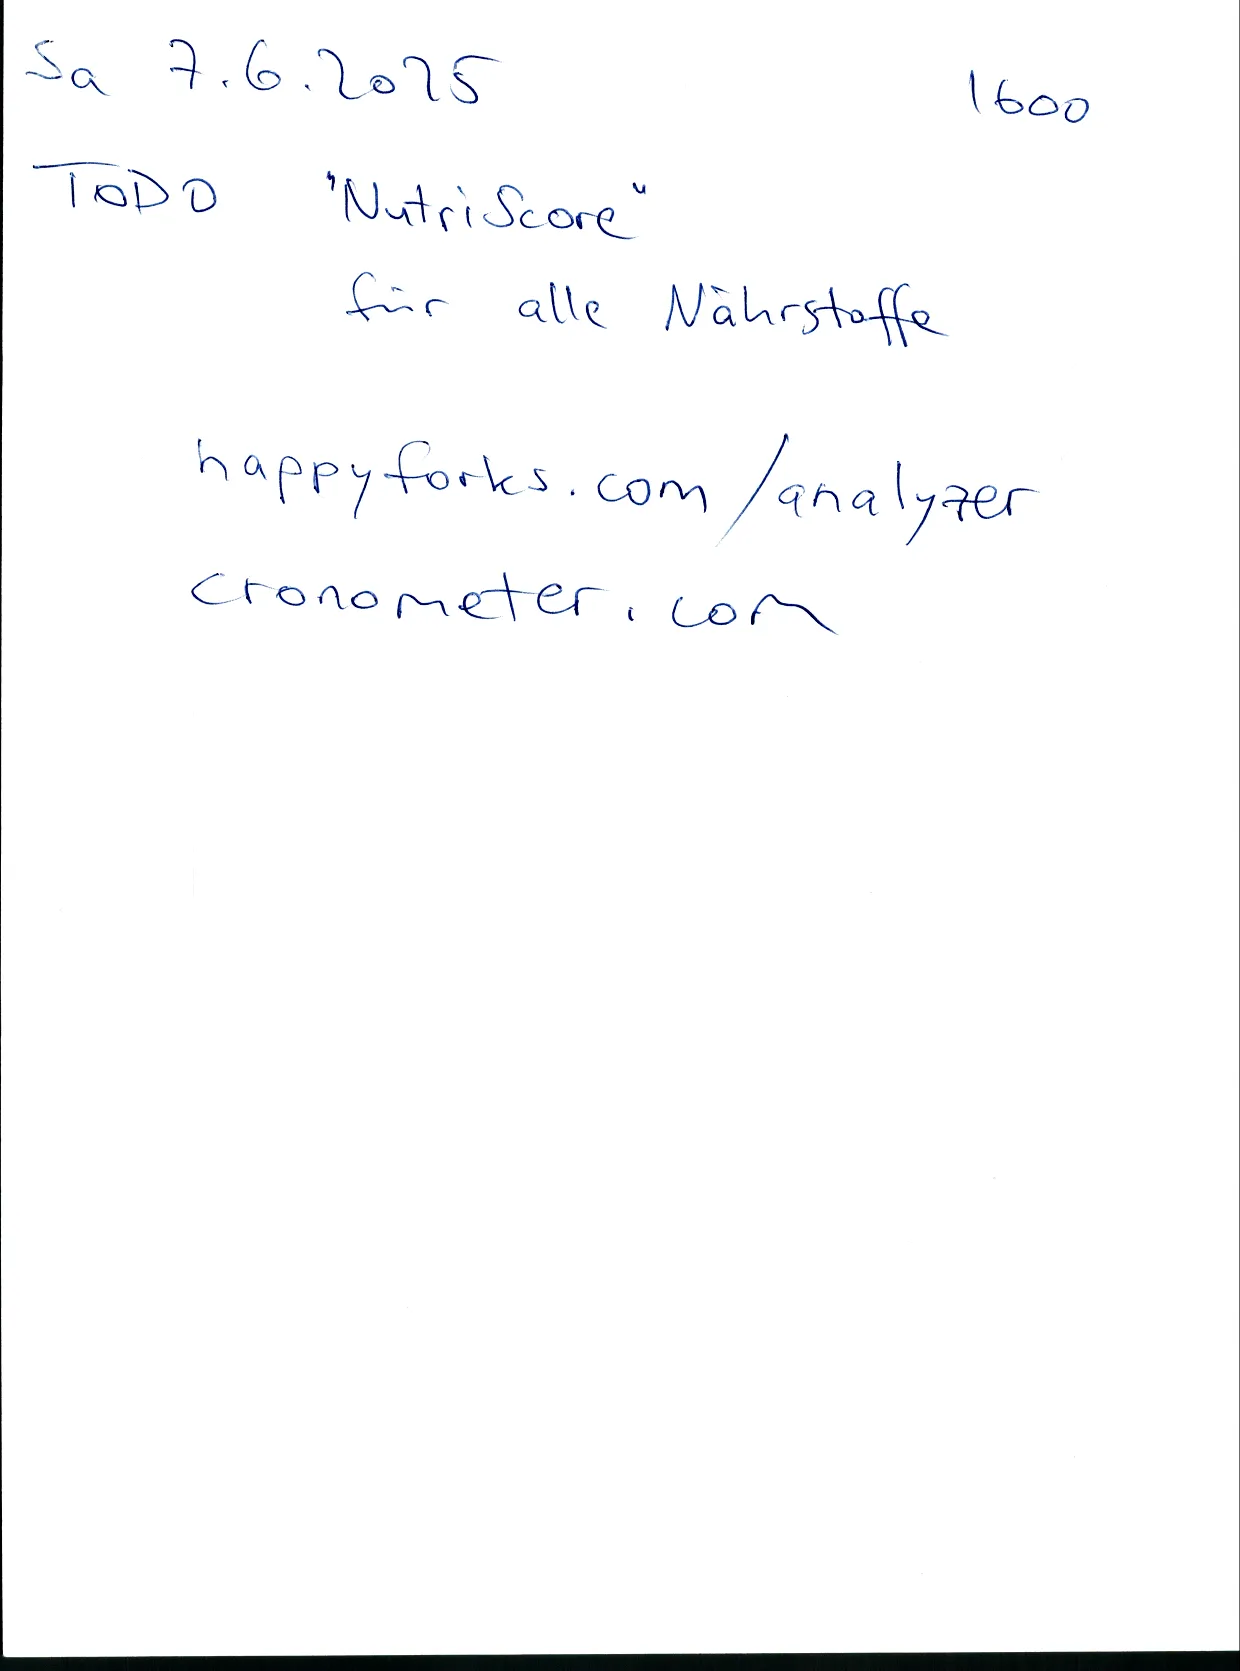 Sa 7.6.2025 1600
TODO "NutriScore"
für alle Nährstoffe
happyforks.com/analyzer
cronometer.com